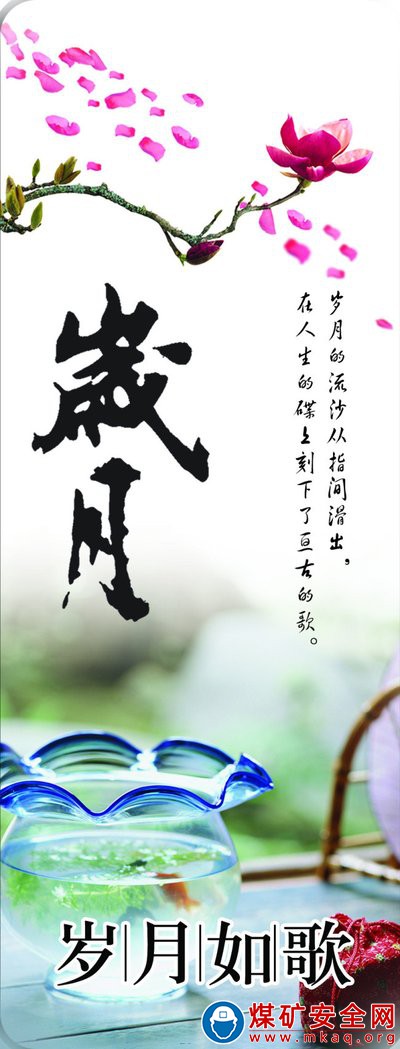 歲月
岁月的流沙从指间滑出，
在人生的碟上刻下了亘古的歌。
岁月如歌
煤矿安全网
www.mkaq.org